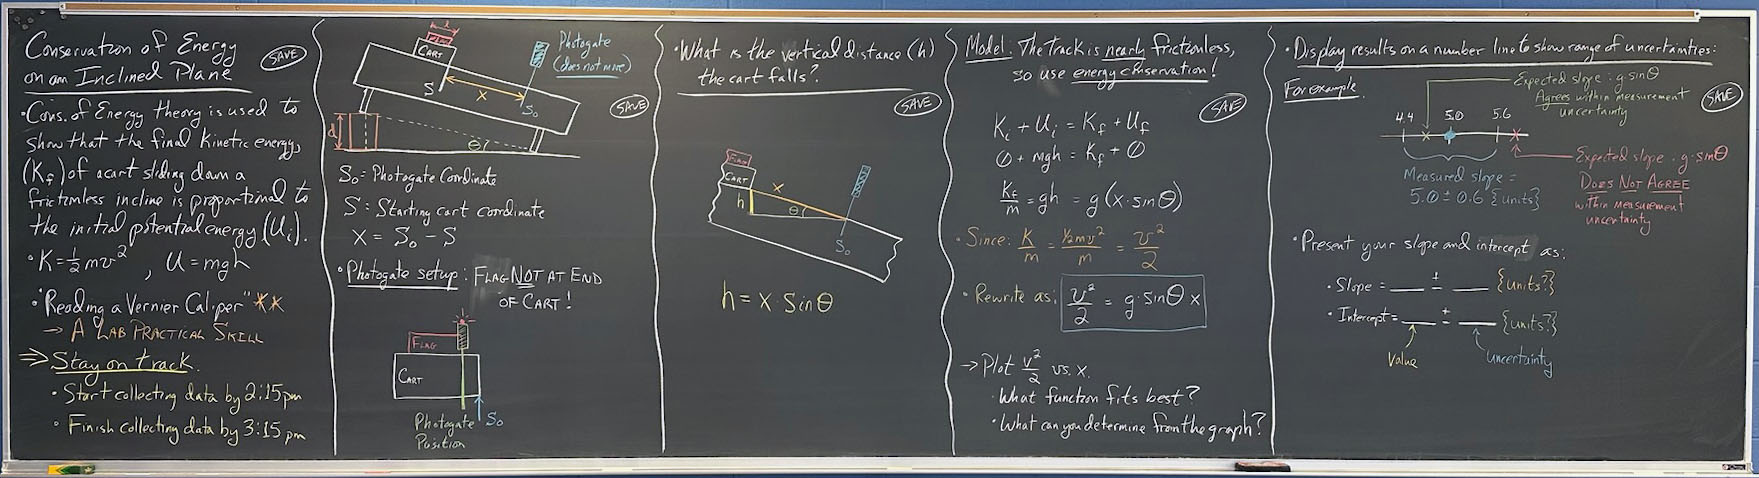 Conservation of Energy
on an Inclined Plane
SAVE
• Cons. of Energy theory is used to
show that the final kinetic energy,
(K_f) of a cart sliding down a
frictionless incline is proportional to
the initial potential energy (U_i).
• K = ½ mv² , U = mgh
• "Reading a Vernier Caliper" **
→ A LAB PRACTICAL SKILL
⇒ Stay on track.
• Start collecting data by 2:15 pm
• Finish collecting data by 3:15 pm
FLAG
CART
Photogate
(does not move)
S
x
S₀
SAVE
d
θ
S₀ = Photogate Coordinate
S = Starting cart coordinate
X = S₀ - S
• Photogate setup: FLAG NOT AT END
OF CART!
FLAG
CART
S₀
Photogate
Position
• What is the vertical distance (h)
the cart falls?
SAVE
FLAG
CART
x
h
θ
S₀
h = x · Sin θ
Model: The track is nearly frictionless,
so use energy conservation!
SAVE
K_i + U_i = K_f + U_f
0 + mgh = K_f + 0
K_f/m = gh = g(x·sinθ)
• Since: K/m = ½mv²/m = v²/2
• Rewrite as: v²/2 = g·sinθ x
→ Plot v²/2 vs. x.
• What function fits best?
• What can you determine from the graph?
• Display results on a number line to show range of uncertainties:
For example
Expected slope: g·sinθ
Agrees within measurement
uncertainty
SAVE
4.4 5.0 5.6
Measured slope =
5.0 ± 0.6 {units}
Expected slope: g·sinθ
DOES NOT AGREE
within measurement
uncertainty
• Present your slope and intercept as:
• Slope = ___ ± ___ {units?}
• Intercept = ___ ± ___ {units?}
Value
Uncertainty